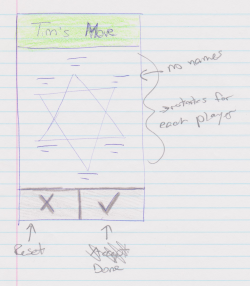 Tim's Move
no names
rotates for
each player
Reset
Done